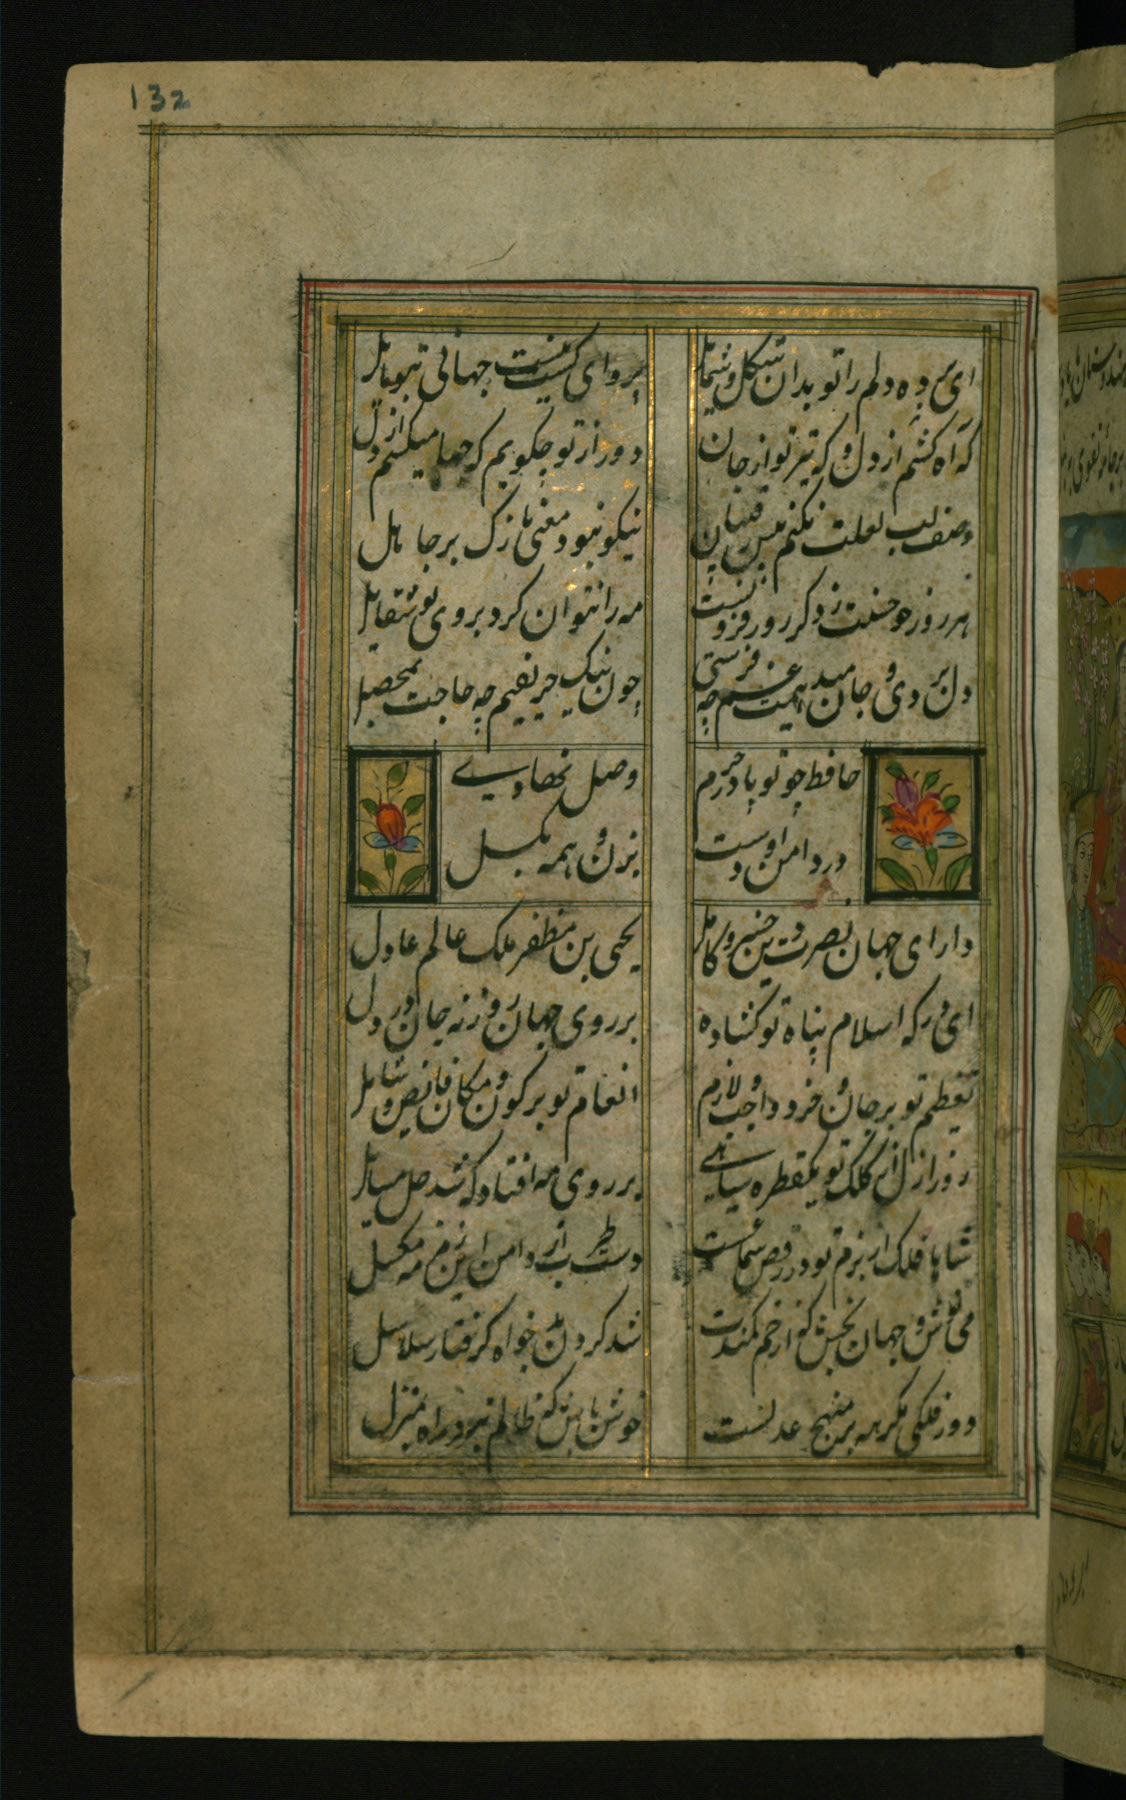 132
ای برده دلم را تو بدان شکل و شمایل
پروای کست نیست جهانی بتو مایل
که آه کشم از دل و که تیر تو از جان
دور از تو چکویم که چها میکشم از دل
وصف لب لعلت نکنم پیش رقیبان
نیکو نبود معنی نازک بر جاهل
هر روز چو حسنت ز دکر روز فزونست
مه را نتوان کرد بروی تو مقابل
دل بردی و جان میدهمت غم چه فرستی
چون نیک حریفیم چه حاجت بمحصل
حافظ چو تو پا در حرم
وصل نهادی
در دامن او دست
بزن و همه بکسل
دارای جهان نصرت دین خسرو کامل
یحیی بن مظفر ملک عالم عادل
ای درکه اسلام پناه تو کشاده
بر روی جهان روزنه جان و در دل
تعظیم تو بر جان و خرد واجب و لازم
انعام تو بر کون و مکان فایض و شامل
روز ازل از کلک تو یکقطره سیاهی
بر روی مه افتاد که شد حل مسائل
شاها فلک از بزم تو در رقص سماعست
دست طرب از دامن این زمزمه مکسل
می نوش و جهان بخش که از خم کمندت
شد کردن بدخواه کرفتار سلاسل
دور فلکی یکسره بر منهج عدلست
خوش باش که ظالم نبرد راه بمنزل